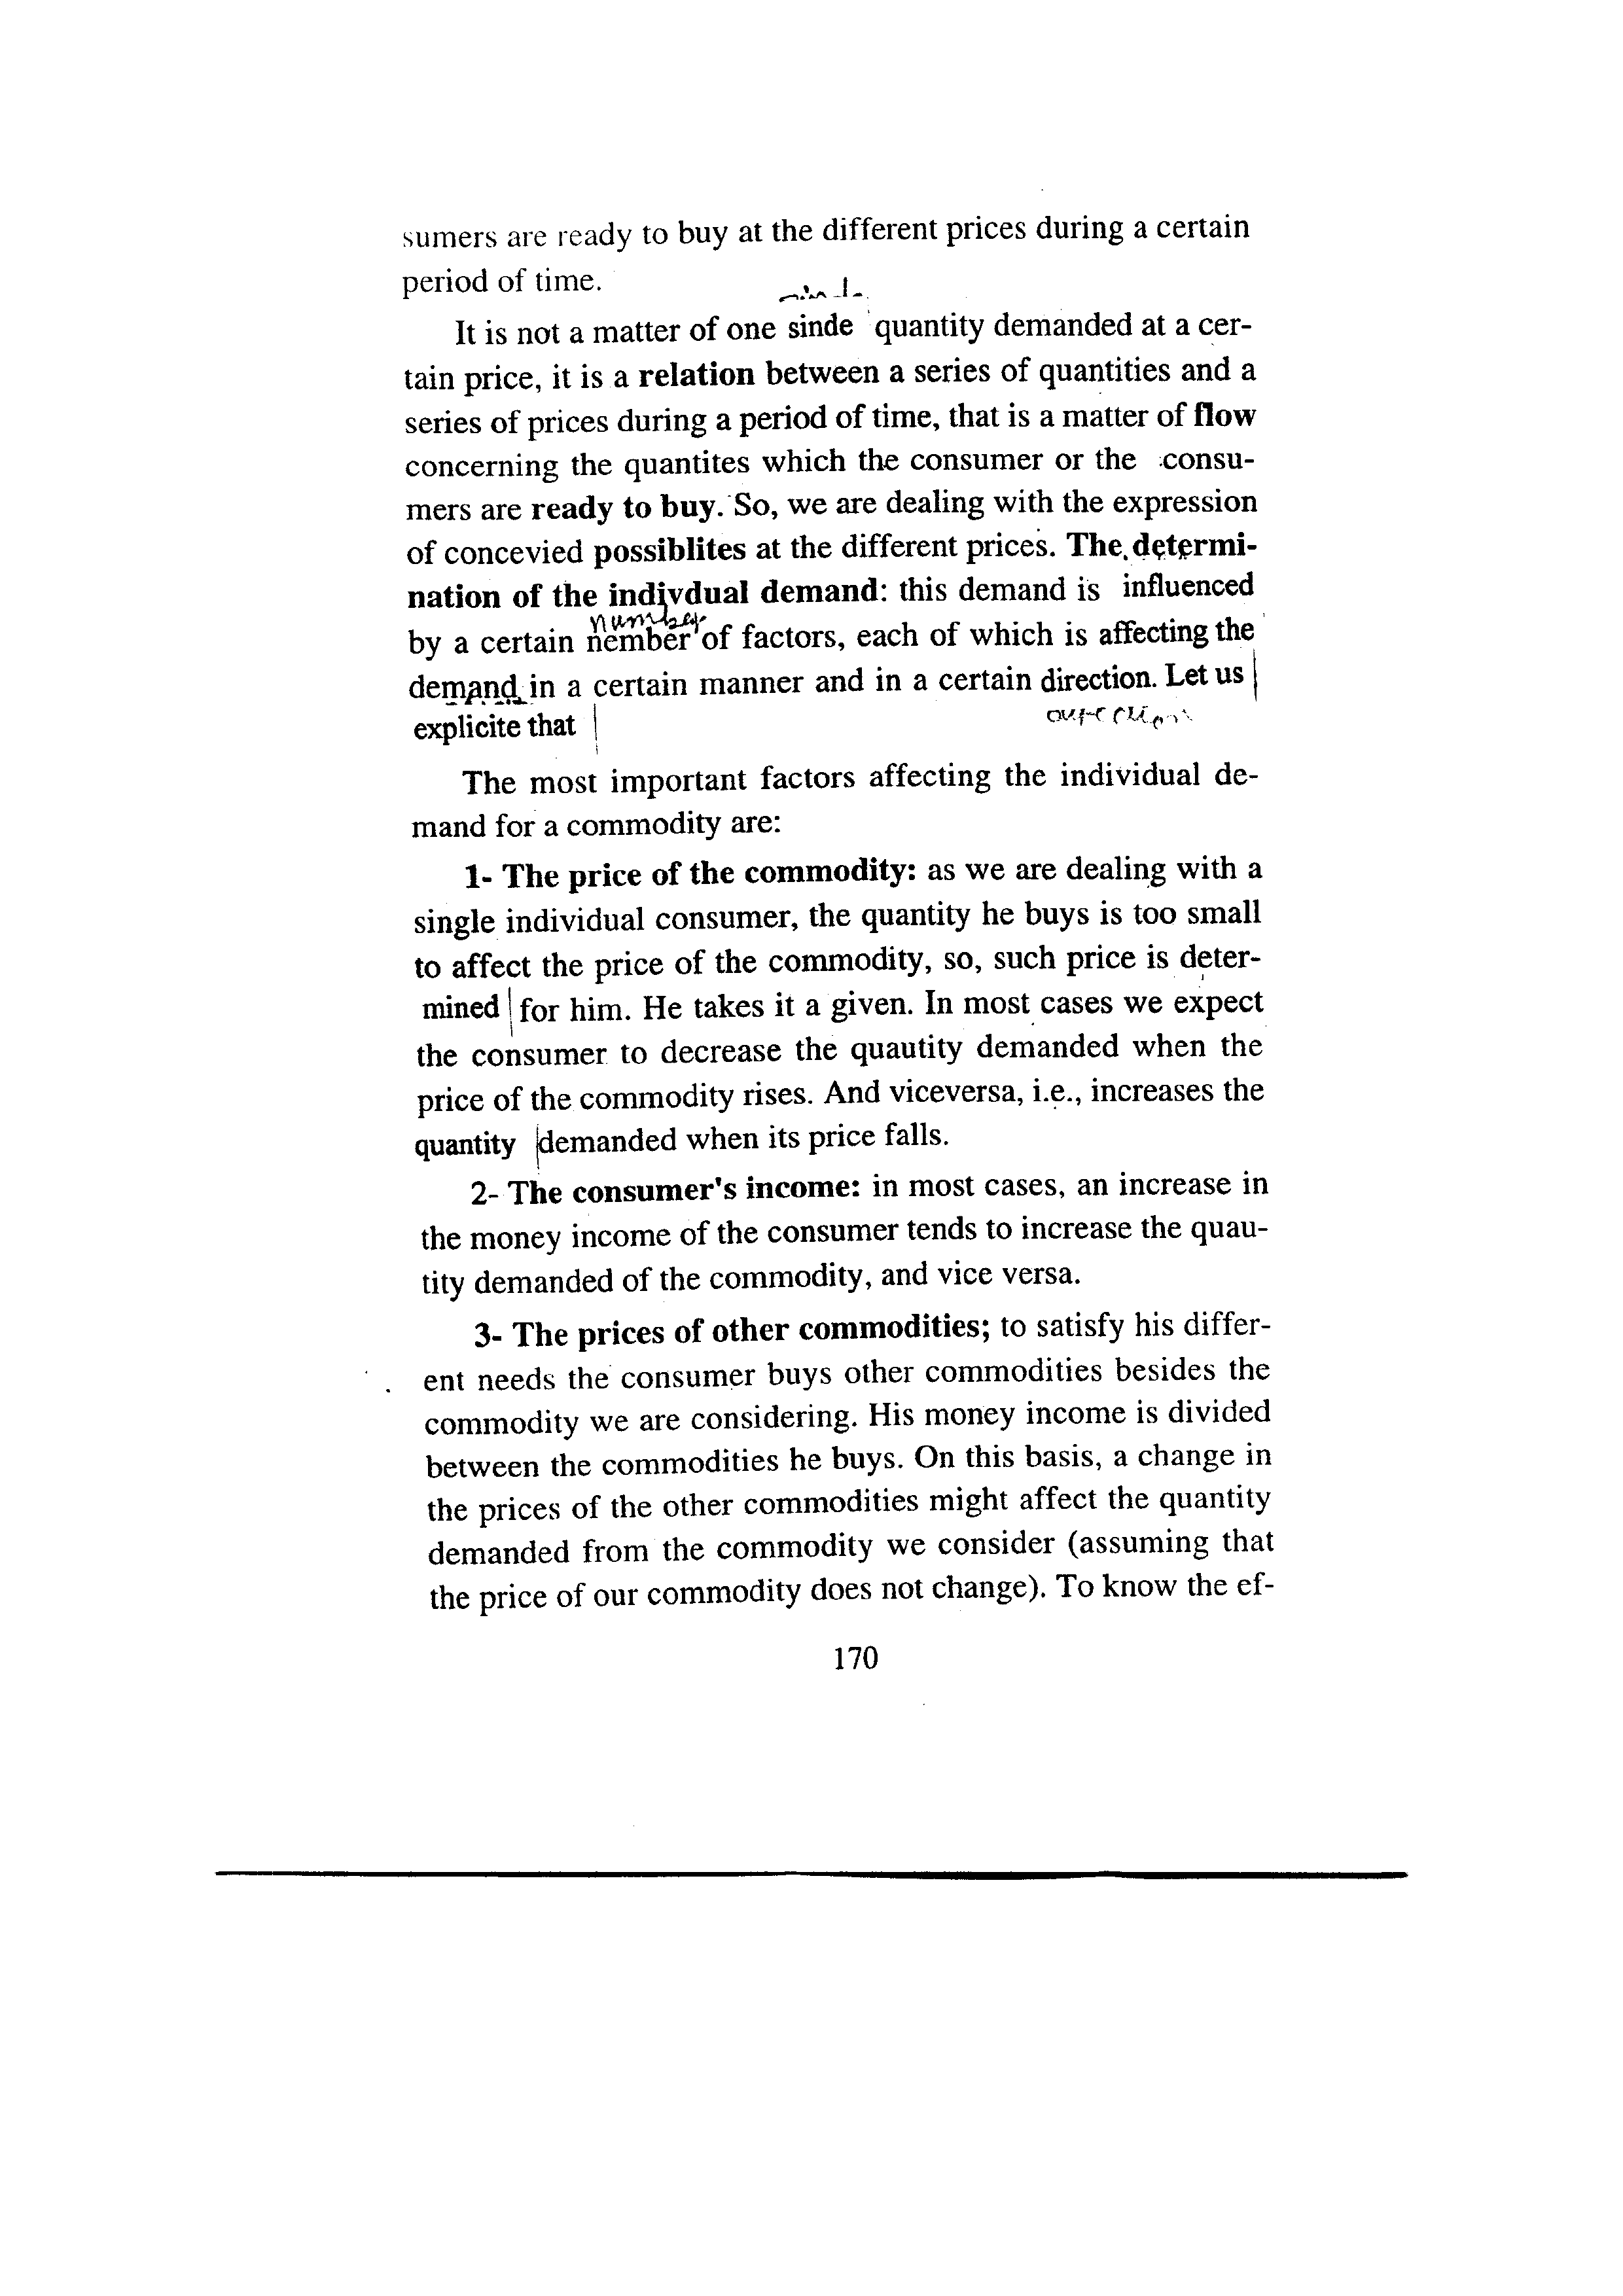 sumers are ready to buy at the different prices during a certain
period of time.
It is not a matter of one sinde quantity demanded at a cer-
tain price, it is a relation between a series of quantities and a
series of prices during a period of time, that is a matter of flow
concerning the quantites which the consumer or the consu-
mers are ready to buy. So, we are dealing with the expression
of concevied possiblites at the different prices. The determi-
nation of the indivdual demand: this demand is influenced
number
by a certain nember of factors, each of which is affecting the
demand in a certain manner and in a certain direction. Let us
explicite that
The most important factors affecting the individual de-
mand for a commodity are:
1- The price of the commodity: as we are dealing with a
single individual consumer, the quantity he buys is too small
to affect the price of the commodity, so, such price is deter-
mined for him. He takes it a given. In most cases we expect
the consumer to decrease the quautity demanded when the
price of the commodity rises. And viceversa, i.e., increases the
quantity demanded when its price falls.
2- The consumer's income: in most cases, an increase in
the money income of the consumer tends to increase the quau-
tity demanded of the commodity, and vice versa.
3- The prices of other commodities; to satisfy his differ-
ent needs the consumer buys other commodities besides the
commodity we are considering. His money income is divided
between the commodities he buys. On this basis, a change in
the prices of the other commodities might affect the quantity
demanded from the commodity we consider (assuming that
the price of our commodity does not change). To know the ef-
170